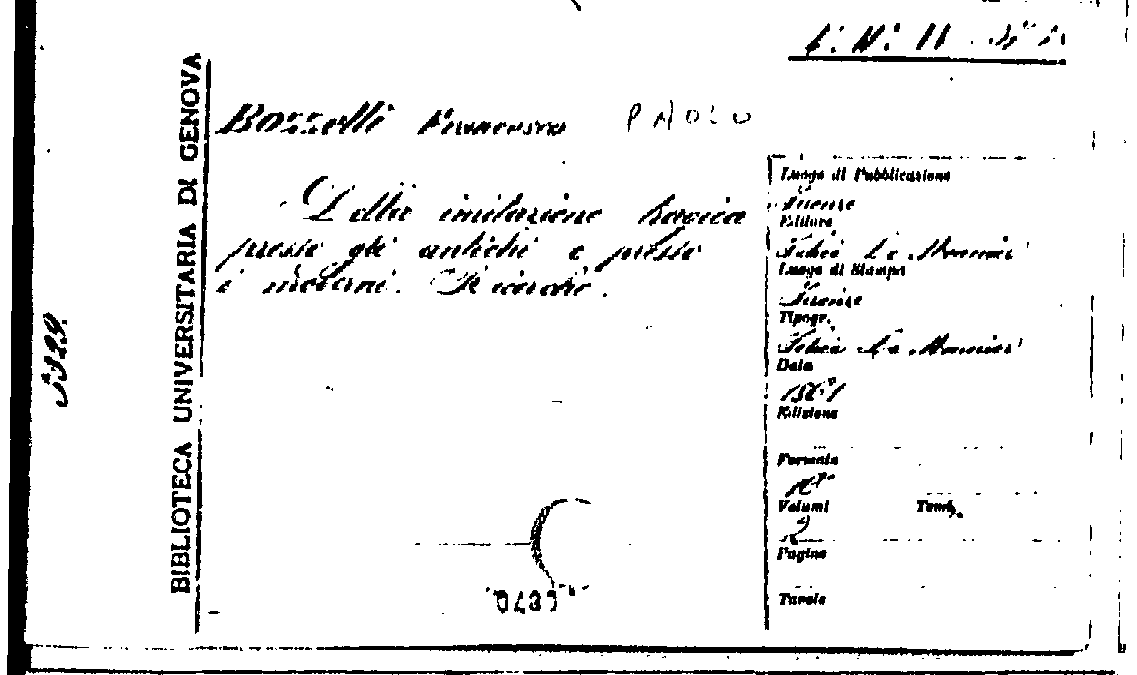 BIBLIOTECA UNIVERSITARIA DI GENOVA
Bozzelli Francesco PAOLO
Della imitazione tragica
presso gli antichi e presso
i moderni. Ricerche.
Luogo di Pubblicazione
Firenze
Editore
Felice Le Monnier
Luogo di Stampa
Firenze
Tipogr.
Felice Le Monnier
Data
1861
Edizione
Formato
Volumi
2
Tomo
Pagine
Tavole